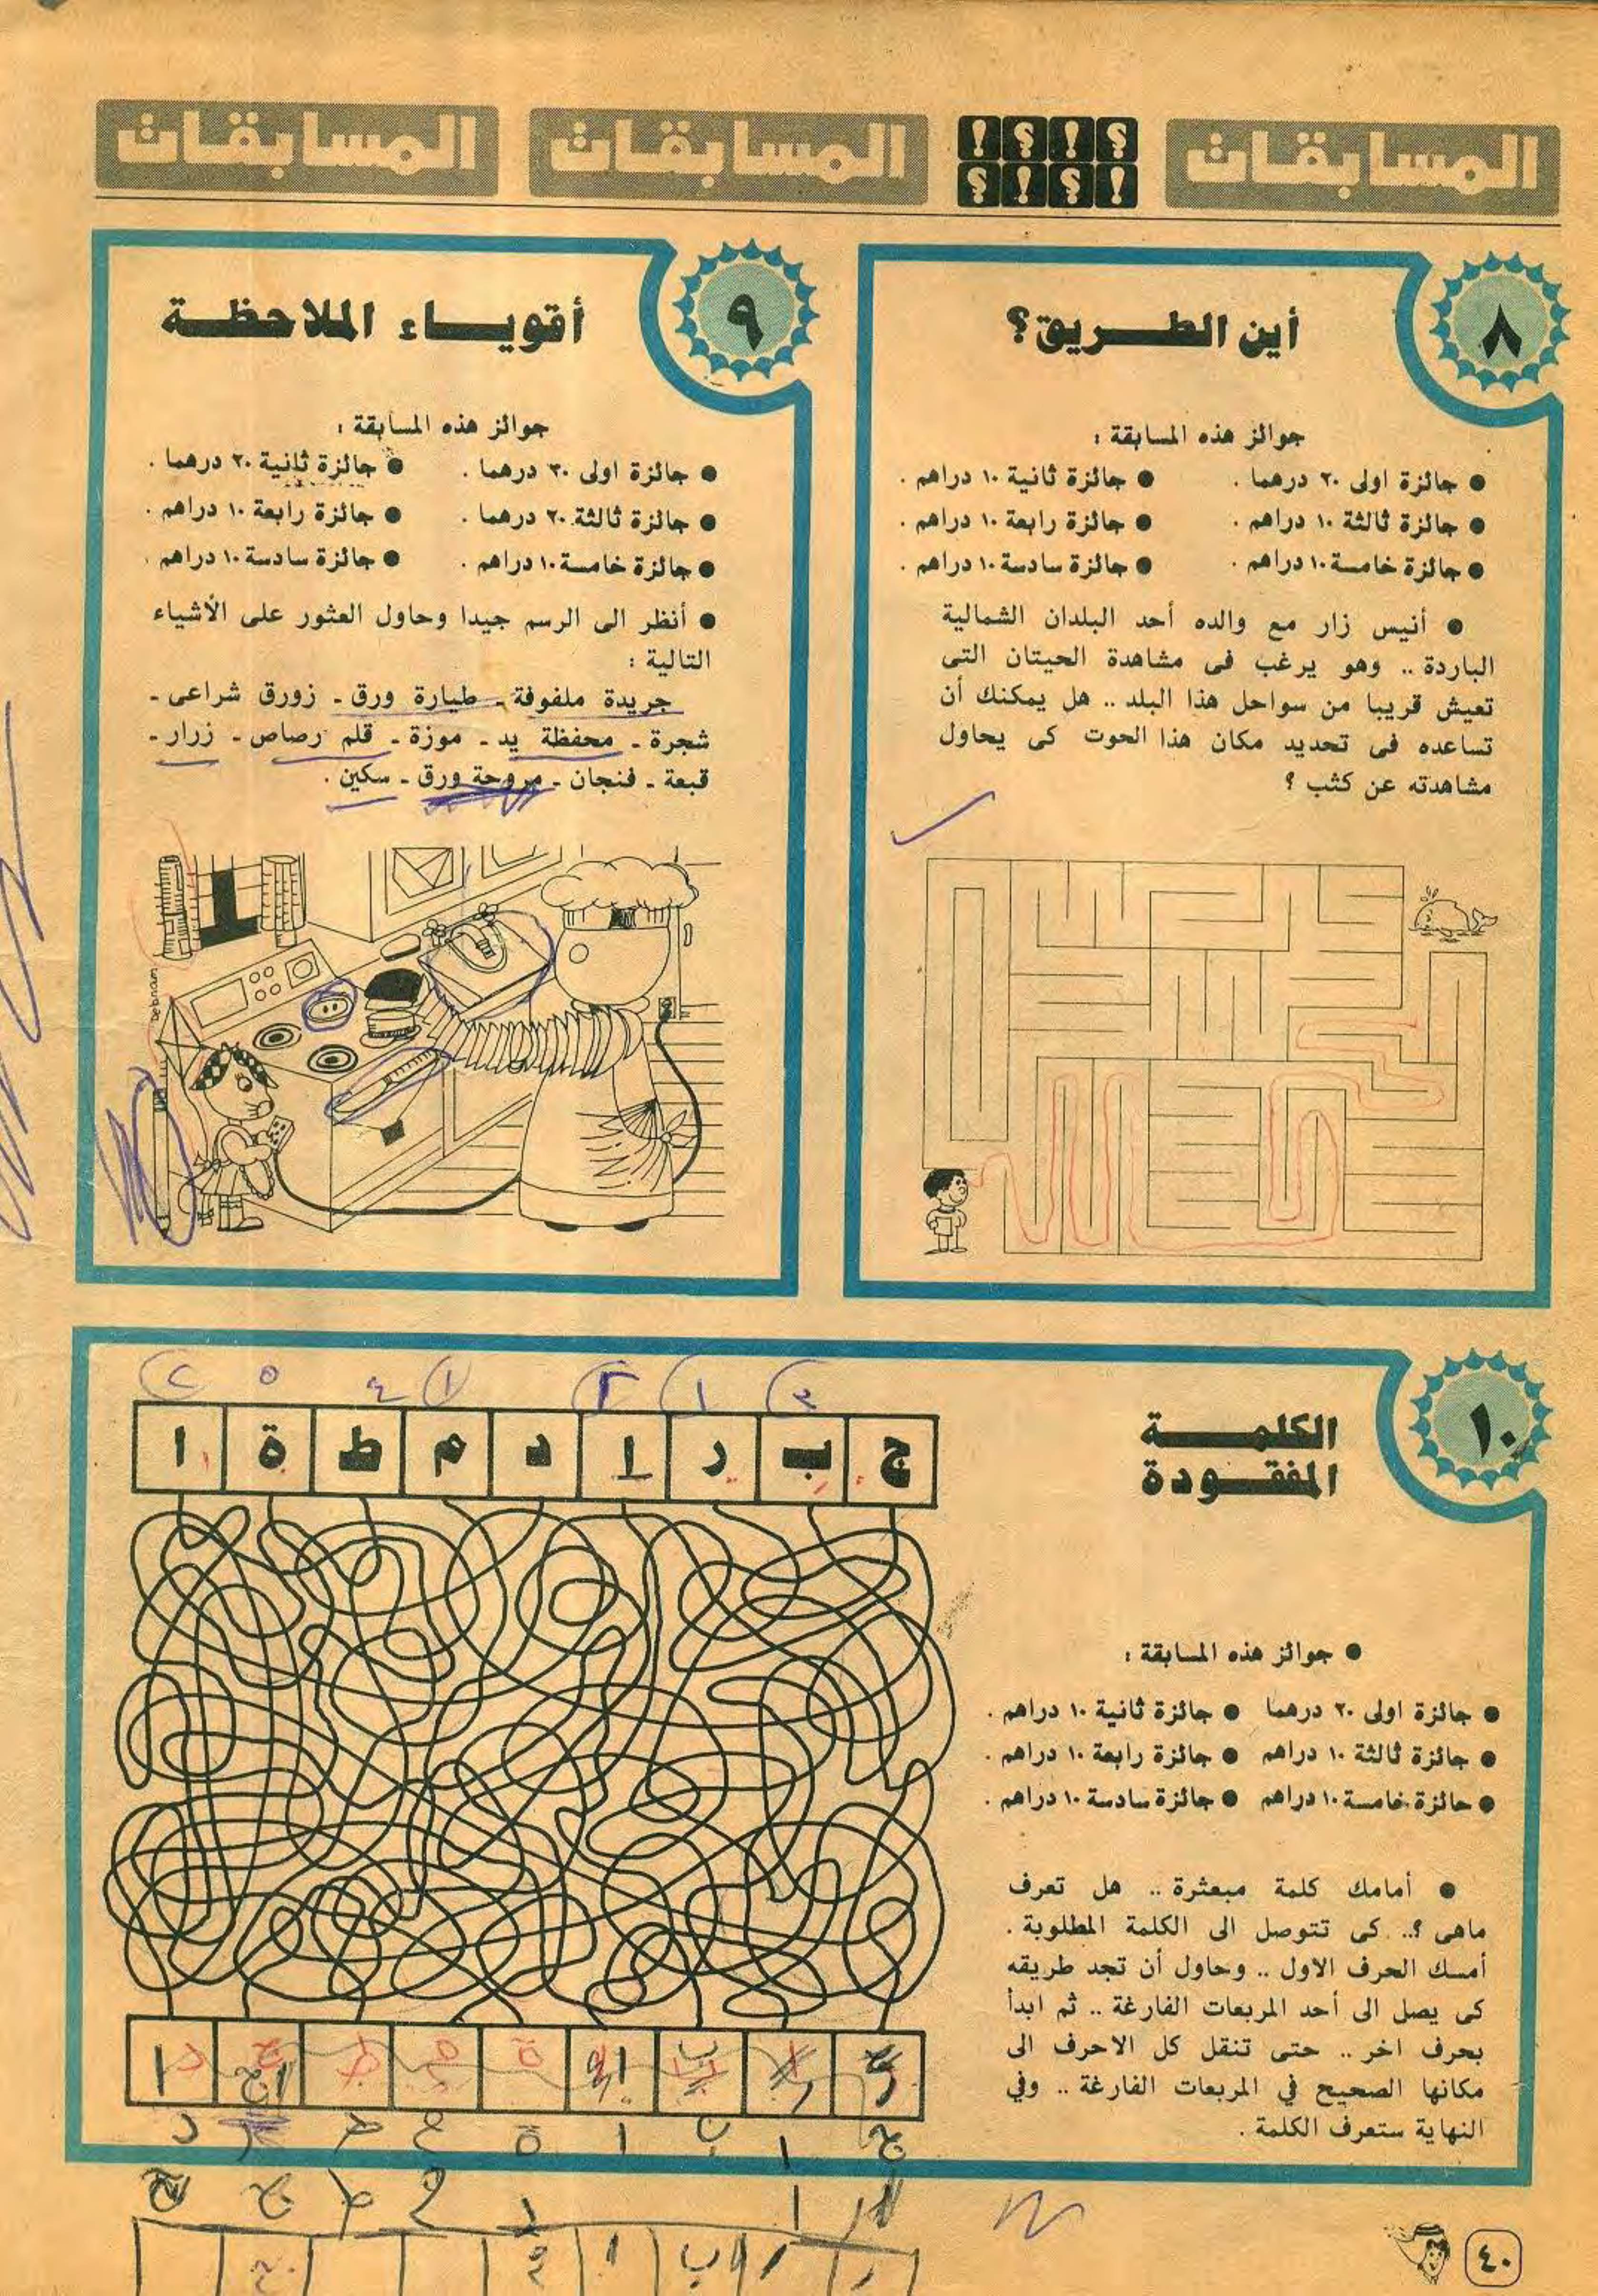 المسابقات ؟!؟! المسابقات المسابقات
!؟!؟
٨
أين الطريق؟
جوائز هذه المسابقة :
● جائزة اولى ٢٠ درهما . ● جائزة ثانية ١٠ دراهم .
● جائزة ثالثة ١٠ دراهم . ● جائزة رابعة ١٠ دراهم .
● جائزة خامسة ١٠ دراهم . ● جائزة سادسة ١٠ دراهم .
● أنيس زار مع والده أحد البلدان الشمالية
الباردة .. وهو يرغب فى مشاهدة الحيتان التى
تعيش قريبا من سواحل هذا البلد .. هل يمكنك أن
تساعده فى تحديد مكان هذا الحوت كى يحاول
مشاهدته عن كثب ؟
٩
أقوياء الملاحظة
جوائز هذه المسابقة :
● جائزة اولى ٣٠ درهما . ● جائزة ثانية ٢٠ درهما .
● جائزة ثالثة ٢٠ درهما . ● جائزة رابعة ١٠ دراهم .
● جائزة خامسة ١٠ دراهم . ● جائزة سادسة ١٠ دراهم .
● أنظر الى الرسم جيدا وحاول العثور على الأشياء
التالية :
جريدة ملفوفة ـ طيارة ورق ـ زورق شراعى ـ
شجرة ـ محفظة يد ـ موزة ـ قلم رصاص ـ زرار ـ
قبعة ـ فنجان ـ مروحة ورق ـ سكين .
١٠
الكلمة
المفقودة
ج ب ر ا د م ط ة ا
● جوائز هذه المسابقة :
● جائزة اولى ٢٠ درهما ● جائزة ثانية ١٠ دراهم .
● جائزة ثالثة ١٠ دراهم ● جائزة رابعة ١٠ دراهم .
● جائزة خامسة ١٠ دراهم ● جائزة سادسة ١٠ دراهم .
● أمامك كلمة مبعثرة .. هل تعرف
ماهى ؟.. كى تتوصل الى الكلمة المطلوبة .
أمسك الحرف الاول .. وحاول أن تجد طريقه
كى يصل الى أحد المربعات الفارغة .. ثم ابدأ
بحرف اخر .. حتى تنقل كل الاحرف الى
مكانها الصحيح في المربعات الفارغة .. وفي
النهاية ستعرف الكلمة .
٤٠